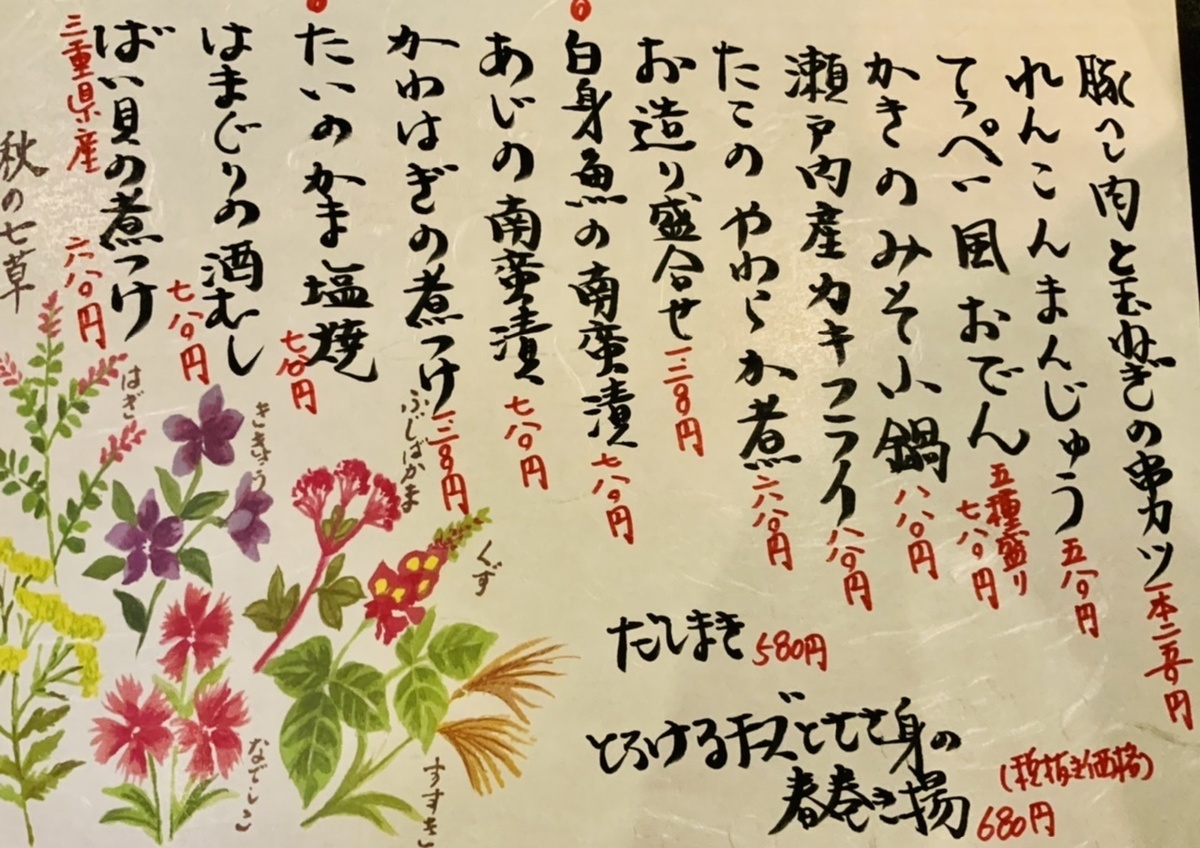 豚ヘレ肉と玉ねぎの串カツ 一本二五〇円
れんこんまんじゅう 五八〇円
てっぺい風おでん 五種盛り 七八〇円
かきのみそ小鍋 八八〇円
瀬戸内産カキフライ 八八〇円
たこのやわらか煮 六八〇円
お造り盛合せ
白身魚の南蛮漬 七八〇円
あじの南蛮漬 七八〇円
かわはぎの煮つけ
たいのかま塩焼 七八〇円
はまぐりの酒むし 七八〇円
ばい貝の煮つけ
三重県産 六八〇円
だしまき 580円
とろけるチーズとささ身の
春巻き揚 680円
(税抜き価格)
秋の七草
はぎ
ききょう
ふじばかま
くず
なでしこ
すすき